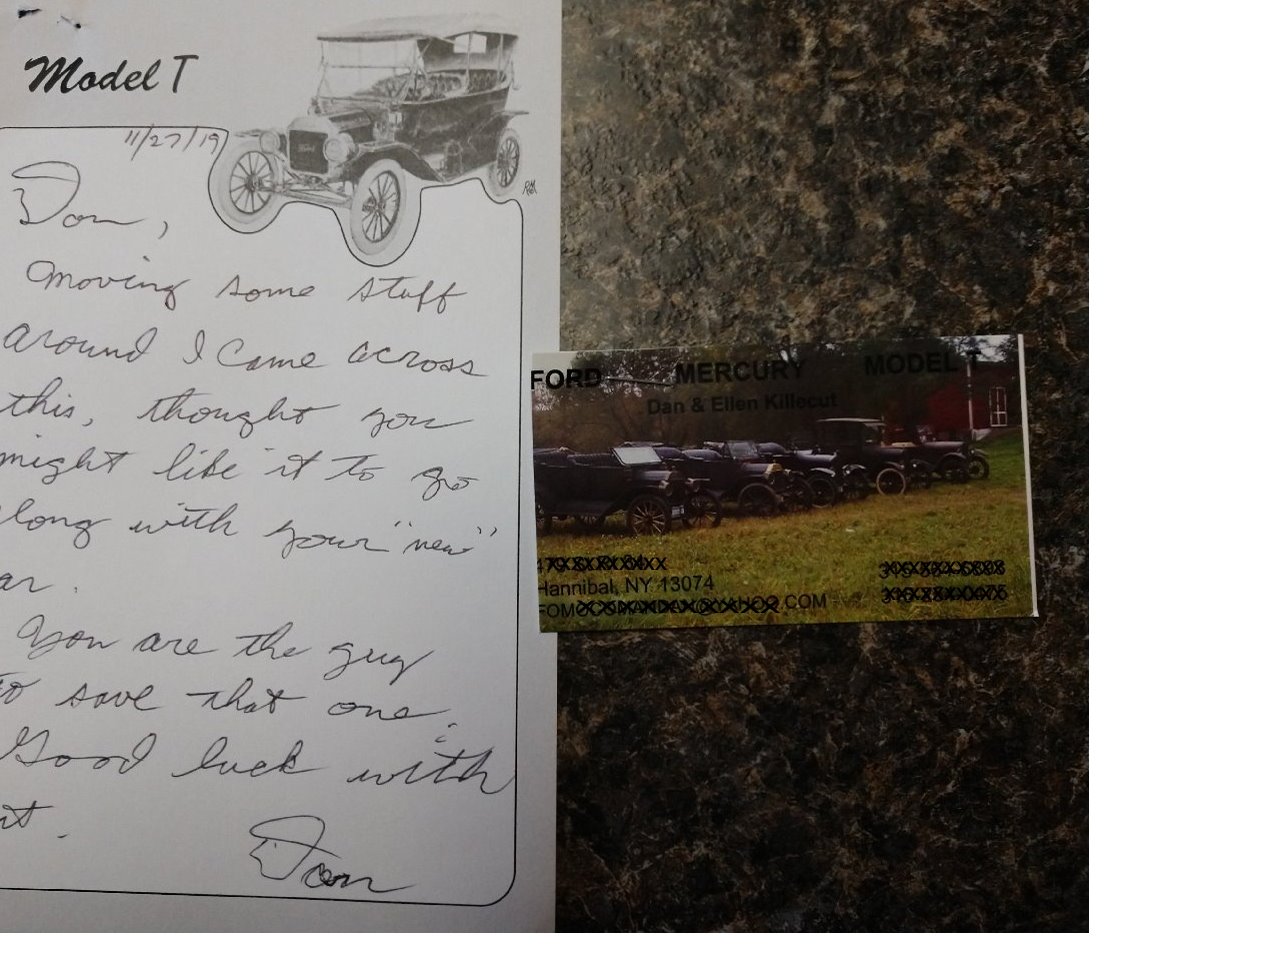 Model T
11/27/19
Don,
Moving some stuff
around I came across
this, thought you
might like it to go
long with your "new"
ar.
You are the guy
to save that one.
Good luck with
it.
Don
Ford
FORD MERCURY MODEL T
Dan & Ellen Killecut
Hannibal, NY 13074
.COM